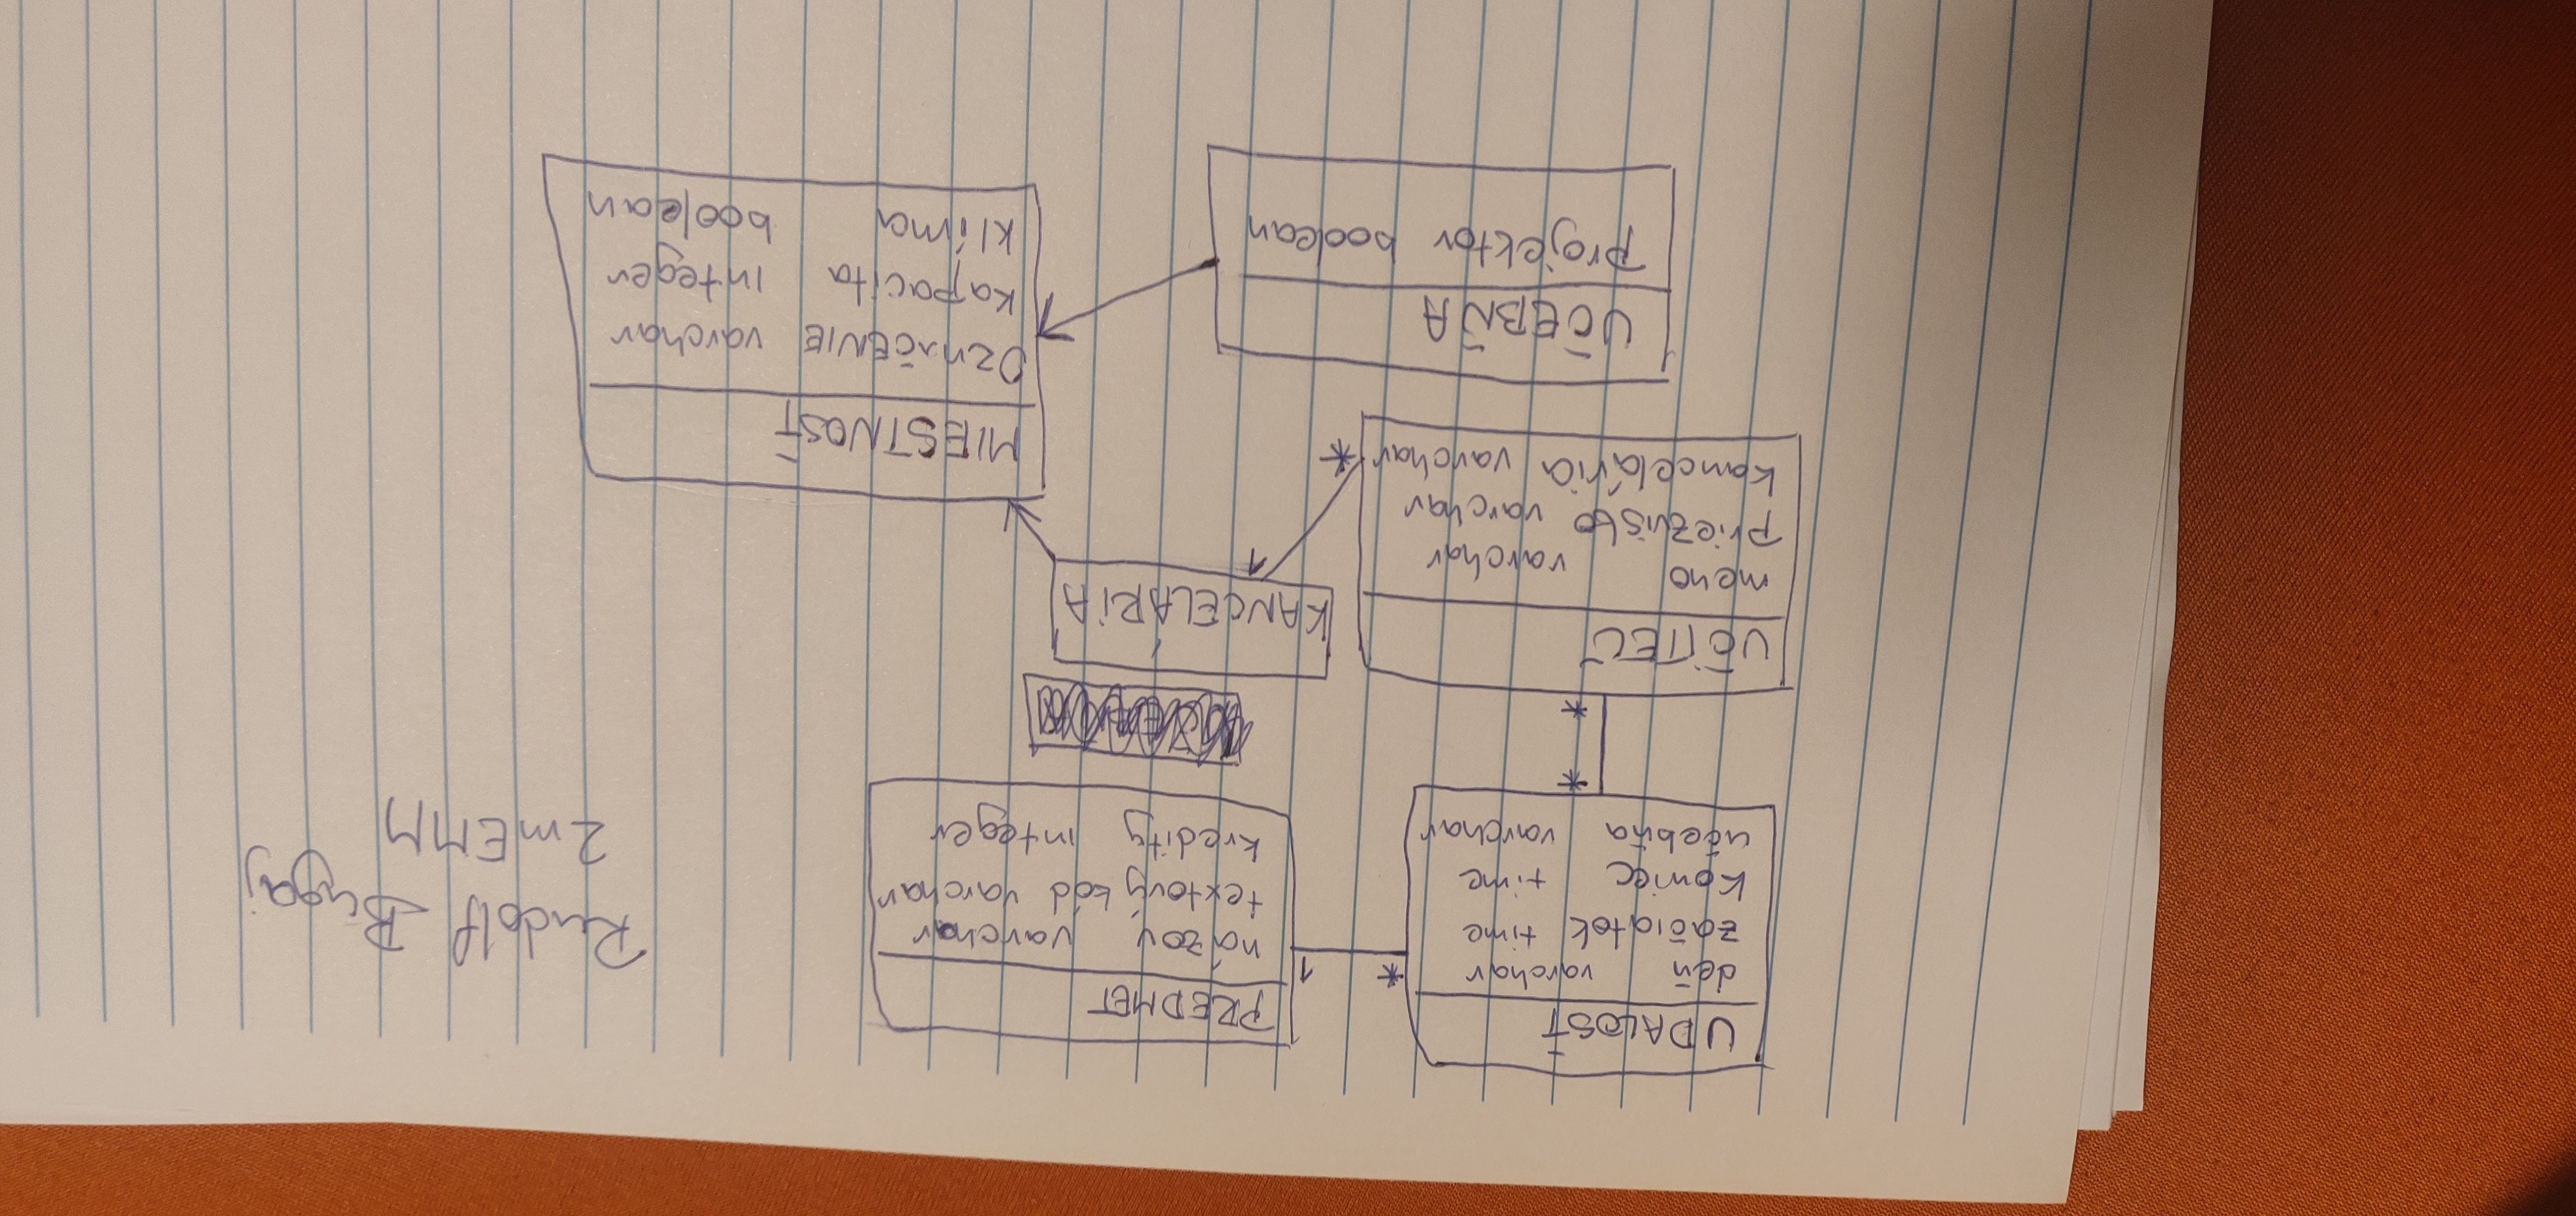 Rudolf Bugaj
2mEMM
UDALOSŤ
deň varchar
začiatok time
koniec time
učebňa varchar
*
1
PREDMET
názov varchar
textový kód varchar
kredity integer
*
*
UČITEĽ
meno varchar
priezvisko varchar
kancelária varchar
*
1
KANCELÁRIA
MIESTNOSŤ
OZNAČENIE varchar
kapacita integer
klíma boolean
UČEBŇA
Projektor boolean